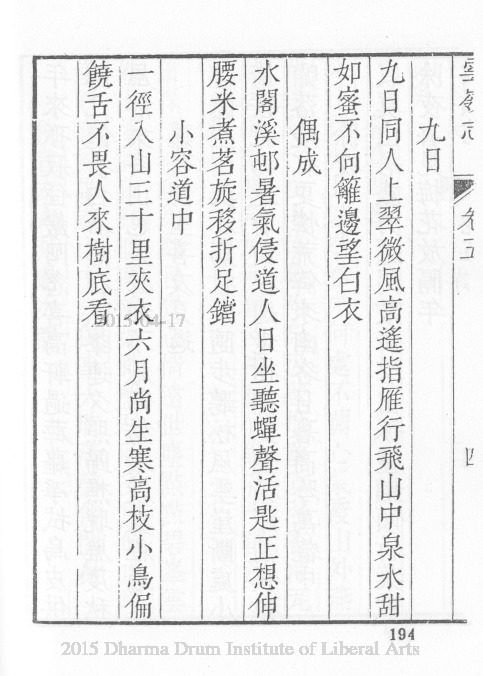 卷五
四
九日
九日同人上翠微風高遙指雁行飛山中泉水甜
如蜜不何籬邊望白衣
偶成
水閣溪邨暑氣侵道人日坐聽蟬聲活匙正想伸
腰米煮茗旋移折足鐺
小容道中
一徑入山三十里夾衣六月尚生寒高枝小鳥偏
饒舌不畏人來樹底看
2015-04-17
194
2015 Dharma Drum Institute of Liberal Arts